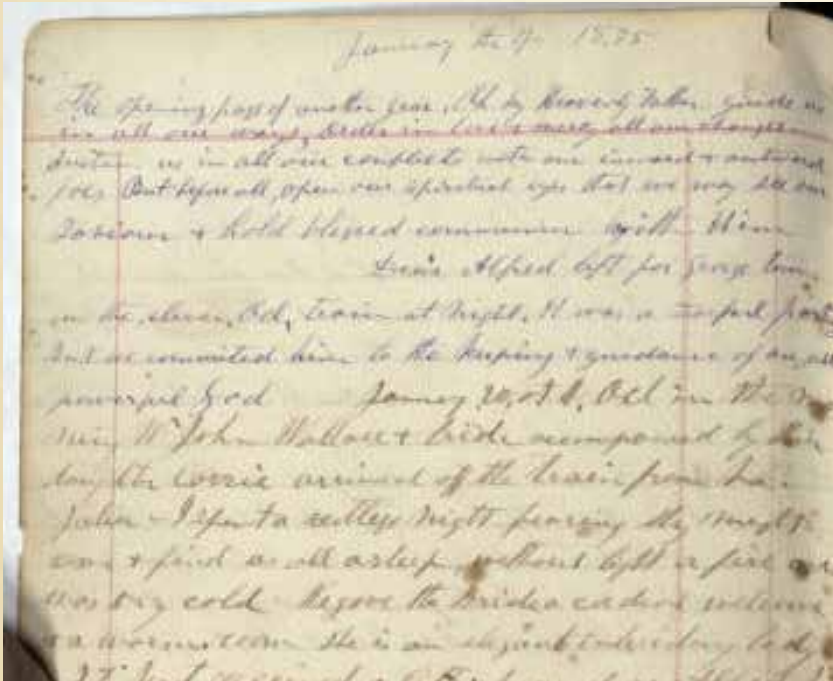 January the 4 1885
The opening page of another year, Oh my Heavenly Father guide us
in all our ways, order in love & mercy all our changes
us in all our conflicts with our inward & outward
foes But before all, open our spiritual eyes that we may see our
Saviour & hold blessed communion with Him
Alfred left for George town
on the eleven, Ocl, train at night, it was a part
And we committed him to the keeping & guidance of an all
powerful God January 20, at Ocl in the
Mr John Wallace & bride accompanied by their
daughter arrived off the train from
John - I spent a restless night fearing they might
come & find us all asleep without light & fire
was very cold We gave the bride a welcome
& a warm room She is an elegant lady